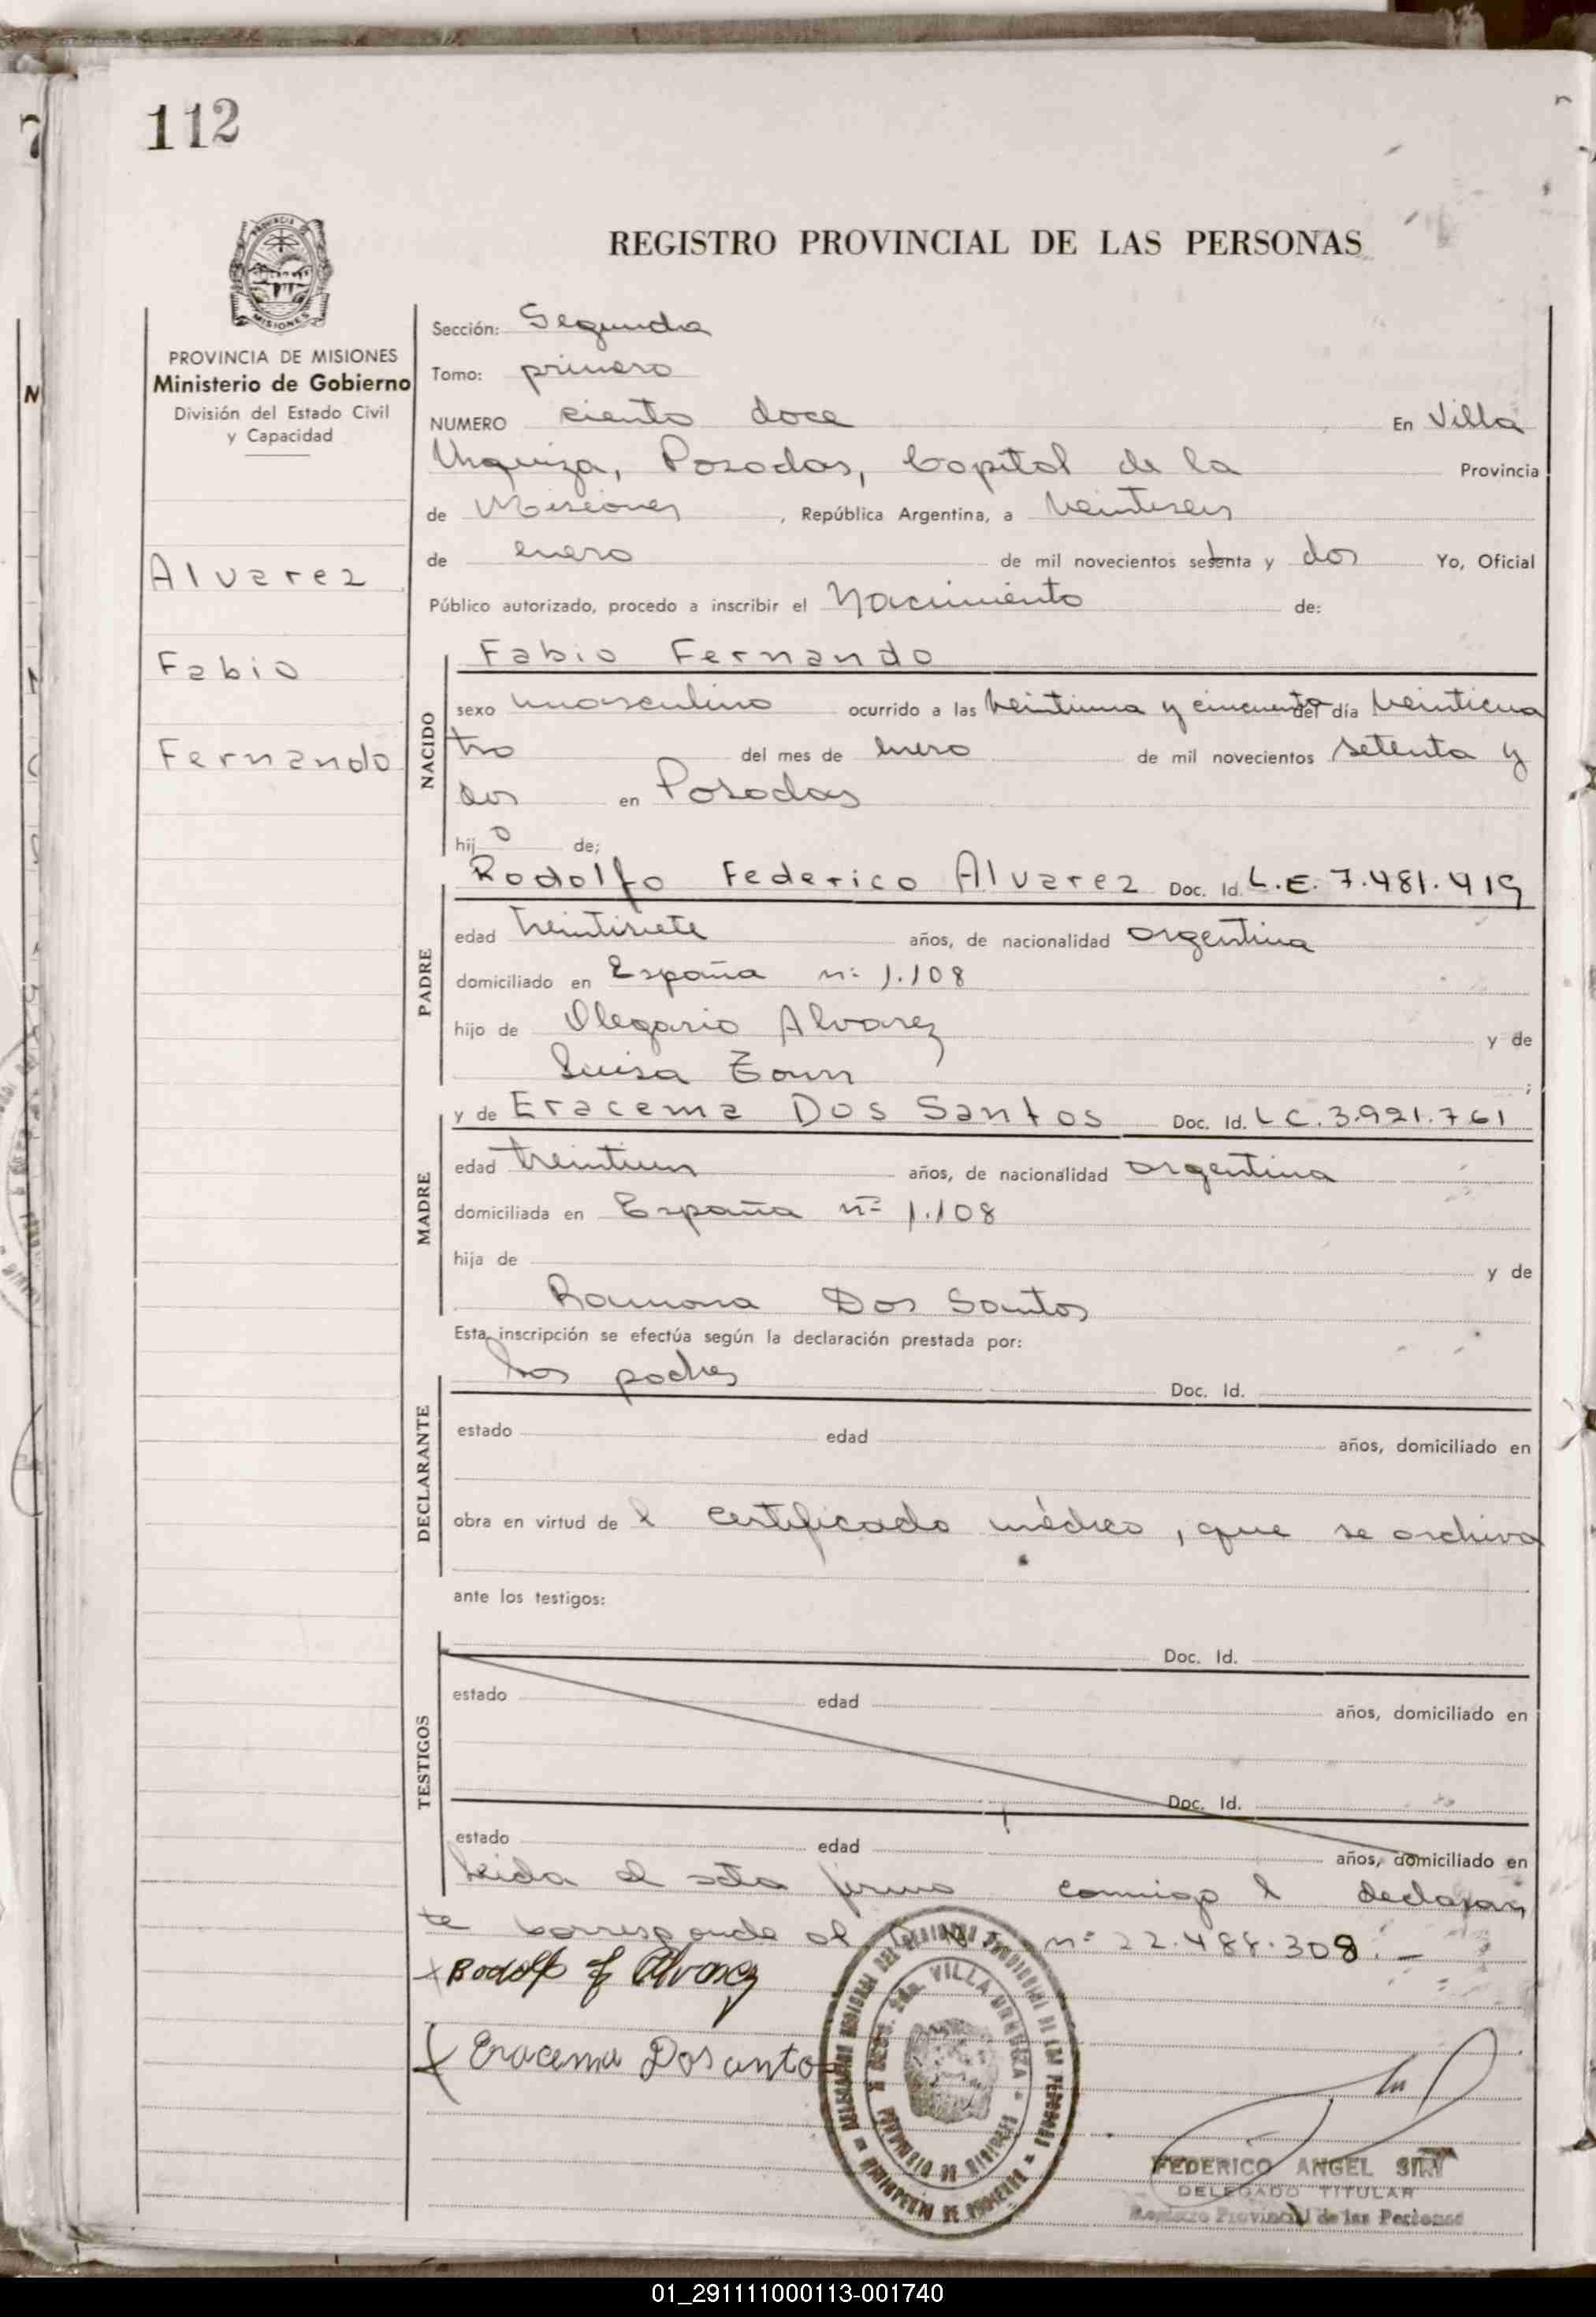 112
PROVINCIA DE
MISIONES
REGISTRO PROVINCIAL DE LAS PERSONAS
PROVINCIA DE MISIONES
Ministerio de Gobierno
División del Estado Civil
y Capacidad
Alvarez
Fabio
Fernando
Sección: Segunda
Tomo: primero
NUMERO ciento doce En Villa
Urquiza, Posadas, Capital de la Provincia
de Misiones, República Argentina, a veintiseis
de enero de mil novecientos setenta y dos Yo, Oficial
Público autorizado, procedo a inscribir el Nacimiento de:
NACIDO
Fabio Fernando
sexo masculino ocurrido a las veintiuna y cincuenta del día veinticua
tro del mes de enero de mil novecientos setenta y
dos en Posadas
hijo de;
PADRE
Rodolfo Federico Alvarez Doc. Id. L.E. 7.481.419
edad treintisiete años, de nacionalidad argentina
domiciliado en España n: 1.108
hijo de Olegario Alvarez y de
Luisa Zaun;
MADRE
y de Eracema Dos Santos Doc. Id. L C. 3.921.761
edad treintiun años, de nacionalidad argentina
domiciliada en España nº 1.108
hija de y de
Ramona Dos Santos
Esta inscripción se efectúa según la declaración prestada por:
DECLARANTE
los padres Doc. Id.
estado edad años, domiciliado en
obra en virtud de l certificado médico, que se archiva
ante los testigos:
TESTIGOS
Doc. Id.
estado edad años, domiciliado en
Doc. Id.
estado edad años, domiciliado en
Leida el acta firma conmigo l declaran
te corresponde al n: 22.488.308. -
x Rodolfo f Alvarez
x Eracema Dosanto
VILLA URQUIZA
PROVINCIA DE MISIONES
MINISTERIO DE GOBIERNO
FEDERICO ANGEL
DELEGADO TITULAR
Registro Provincial de las Personas
01_291111000113-001740